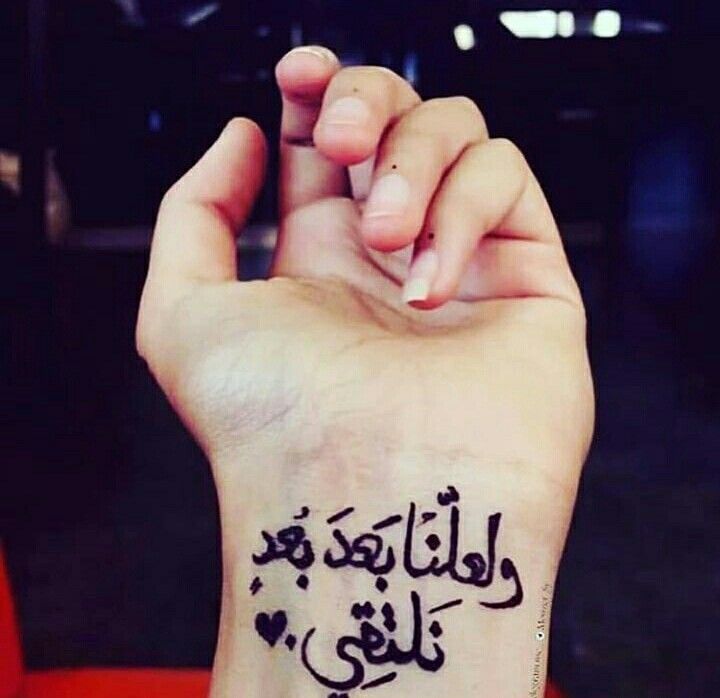 ولعلّنا بَعدَ بُعدٍ
نَلتقِي.♥